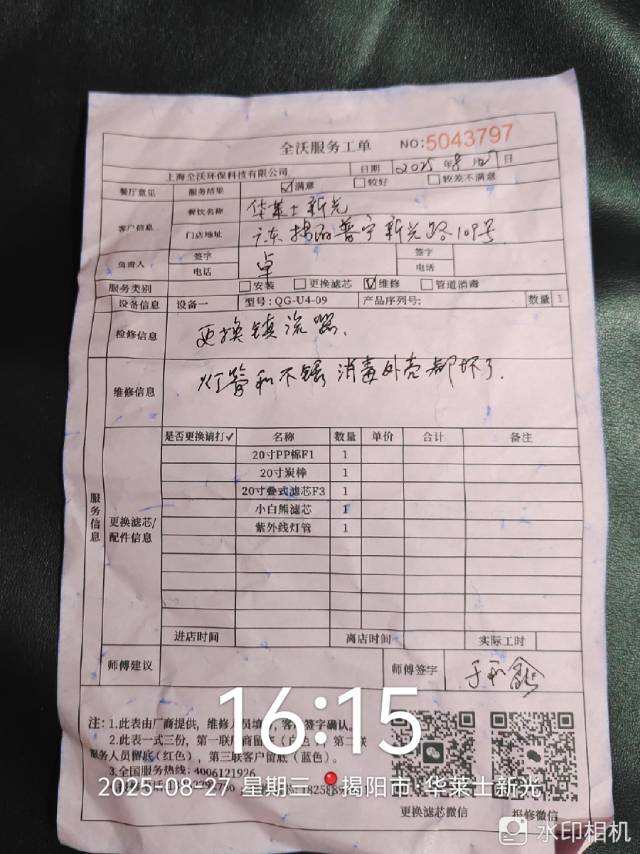 全沃服务工单 NO:5043797
上海全沃环保科技有限公司 日期 2025年8月27日
餐厅意见 服务结果 ☑满意 □较好 □较差不满意
客户信息 餐饮名称 华莱士新光
门店地址 广东揭阳普宁新光路109号
负责人 签字 卓 签字
电话 电话
服务类别 □安装 □更换滤芯 ☑维修 □管道消毒
设备信息 设备一 型号:QG-U4-09 产品序列号: 数量 1
检修信息 更换镇流器.
维修信息 灯管和不锈消毒外壳都坏了.
服务信息
更换滤芯/配件信息
是否更换请打✓ 名称 数量 单价 合计 备注
20寸PP棉F1 1
20寸炭棒 1
20寸叠式滤芯F3 1
小白熊滤芯 1
紫外线灯管 1
进店时间 离店时间 实际工时
师傅建议 师傅签字
16:15
注:1.此表由厂商提供,维修人员填
签字确认.
2.此表一式三份,第一联厂商留底(白色),第二联
服务人员留底(红色),第三联客户留底(蓝色)。
3.全国服务热线:4006121926
2025-08-27 星期三 揭阳市·华莱士新光
更换滤芯微信 报修微信
水印相机